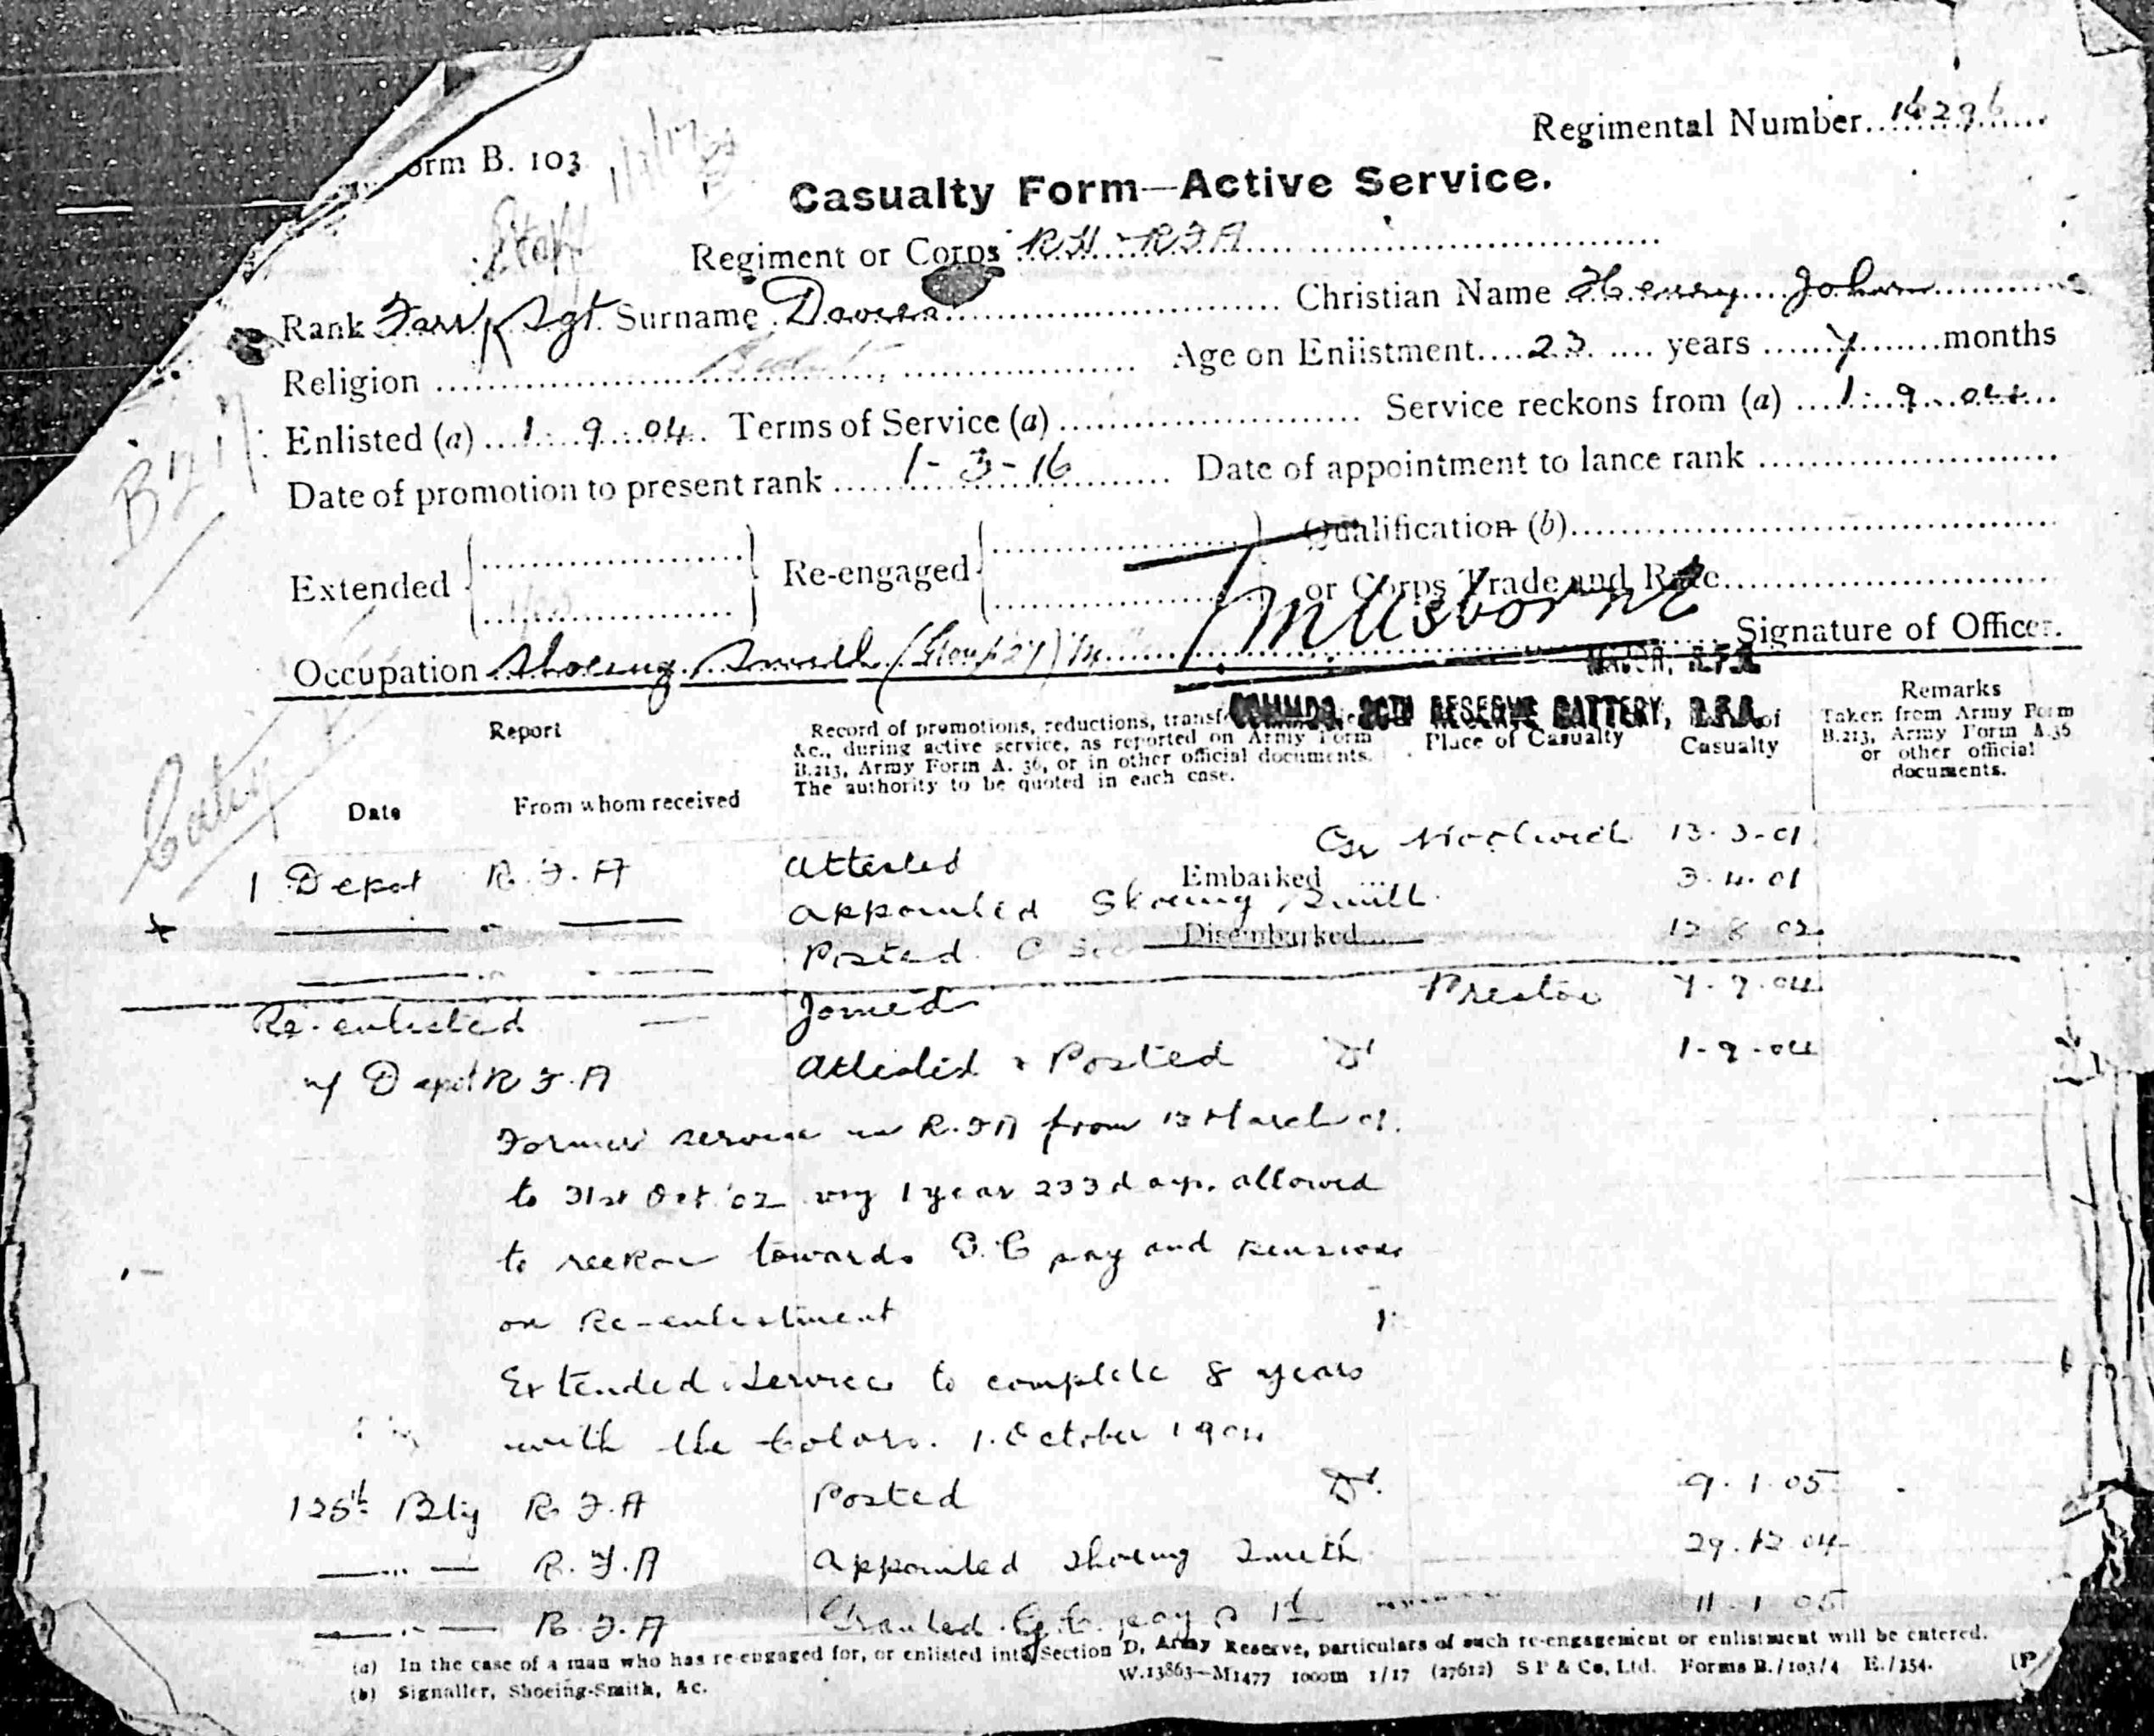 Regimental Number 16296
orm B. 103
Casualty Form—Active Service.
Staff
Regiment or Corps RH & RFA
Rank Farr Sgt. Surname Christian Name Henry John
Religion Age on Enlistment 23 years 7 months
Enlisted (a) 1. 9. 04. Terms of Service (a) Service reckons from (a) 1. 9. 04
Date of promotion to present rank 1-3-16 Date of appointment to lance rank
Extended Re-engaged Qualification (b)
or Corps Trade and Rate
Occupation Shoeing Smith (Group 27) Signature of Officer.
MAJOR, R.F.A.
COMMDG. RESERVE BATTERY, R.F.A.
Report
Record of promotions, reductions, &c., during active service, as reported on Army Form B.213, Army Form A. 36, or in other official documents. The authority to be quoted in each case.
Place of Casualty
of Casualty
Remarks
Taken from Army Form B.213, Army Form A.36 or other official documents.
Date From whom received
1 Depot R.F.A Attested Woolwich 13-3-01
Embarked ...
Appointed Shoeing Smith 3.4.01
Disembarked
Posted C 12 8 02
Re-enlisted Joined Preston 7.9.04
Depot R F.A Attested & Posted Dr 1-9-04
Former service in R.F.A from 13 March 01.
to 31st Oct '02 viz 1 year 233 days. allowed
to reckon towards G.C pay and pension
on Re-enlistment
Extended Service to complete 8 years
with the Colors. 1. October 1904
Bty R.F.A Posted Dr. 9.1.05
R.F.A Appointed Shoeing Smith 29.12.04
R.F.A Granted G.C. pay @ 1d 11.1.05
(a) In the case of a man who has re-engaged for, or enlisted into Section D, Army Reserve, particulars of such re-engagement or enlistment will be entered.
(b) Signaller, Shoeing-Smith, &c.
W.13863—M1477 1000m 1/17 (27612) S P & Co., Ltd. Forms B./103/4 E./354.
(P